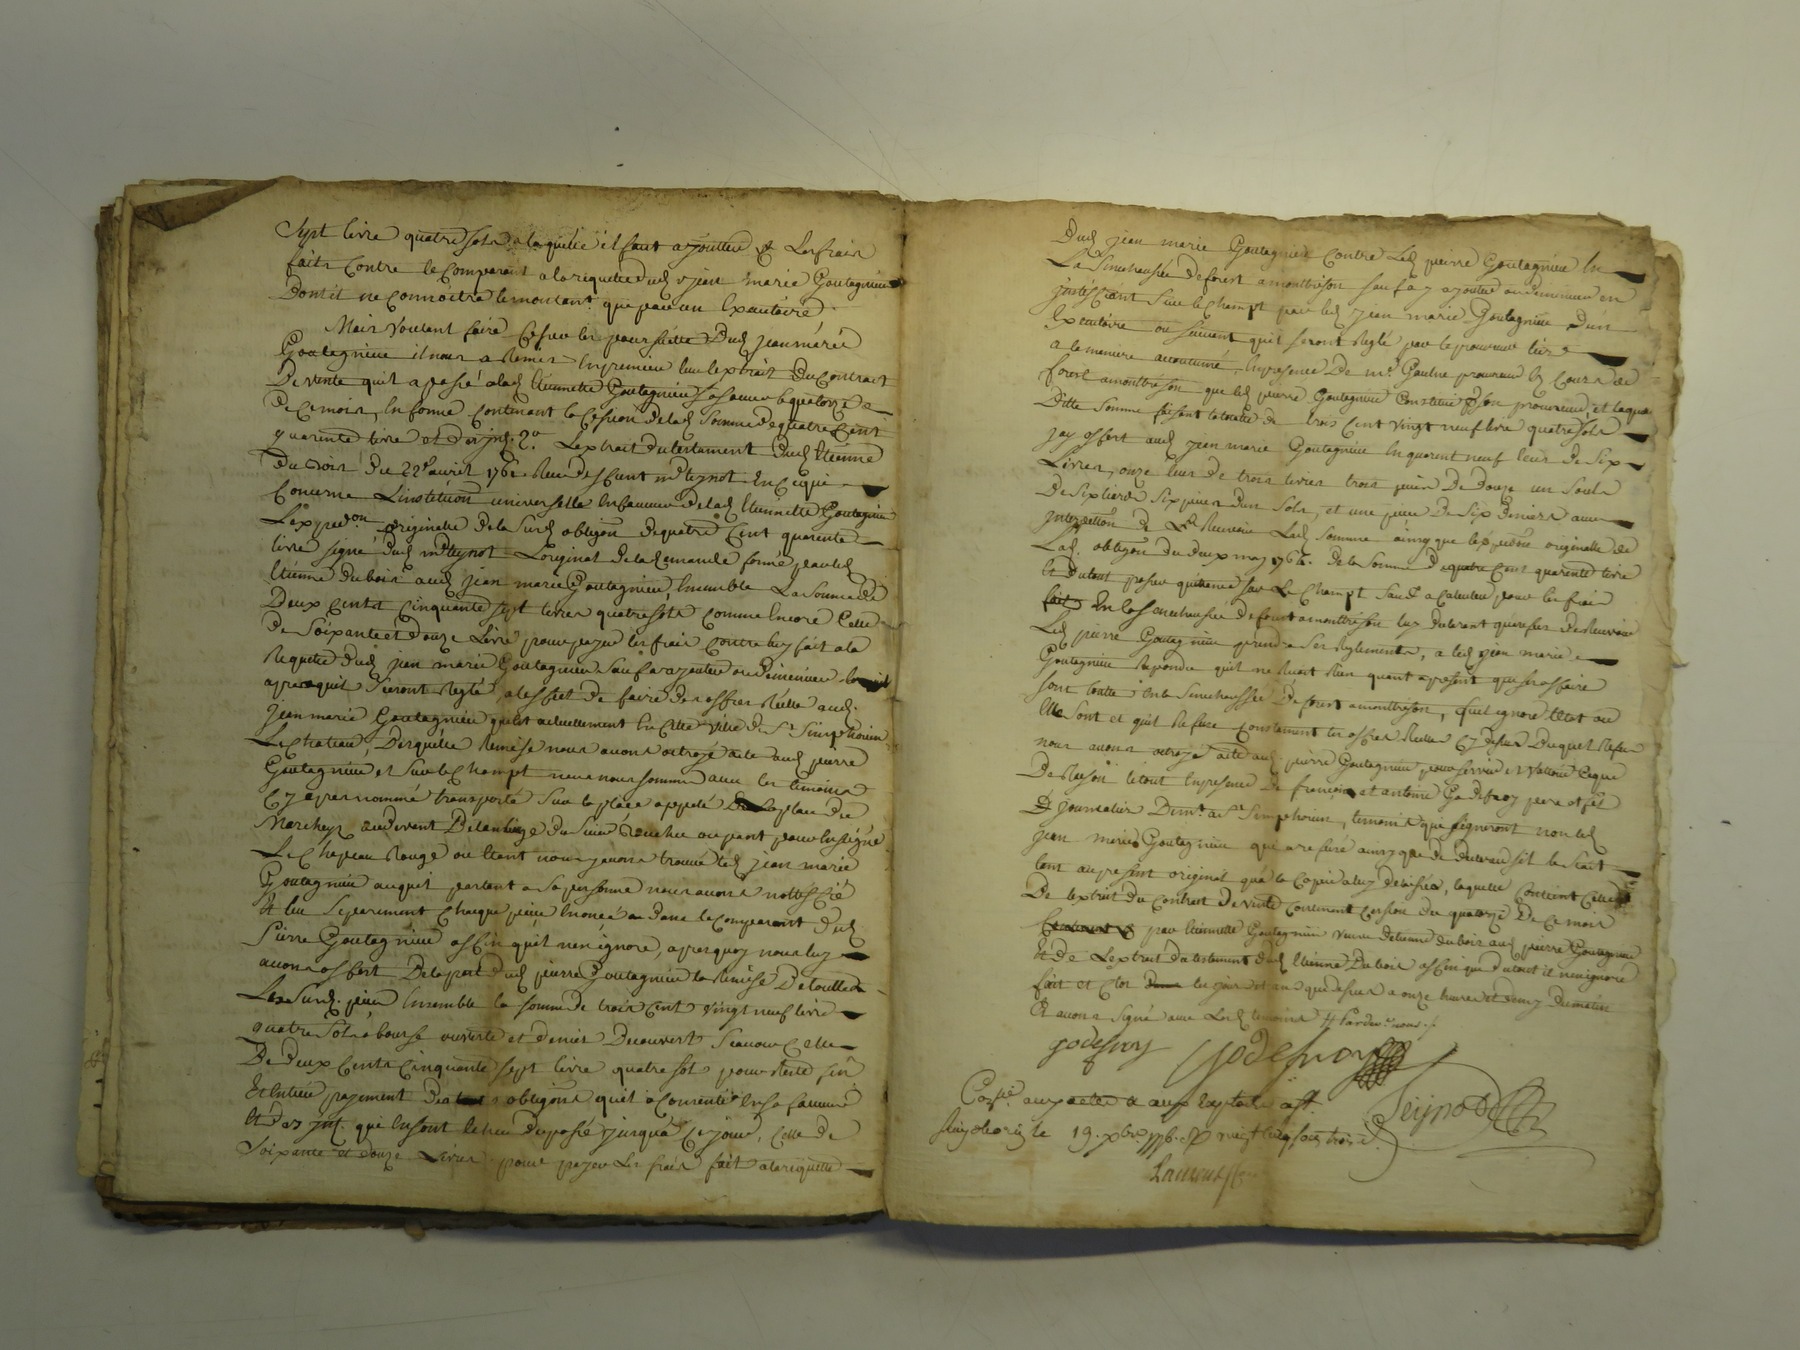 Sept livre quatre sols a laquelle il faut ajoutter les frais
faits contre le comparant a la requette dud jean marie Goutagnieu
Dont il ne connoitra le montant que par un Exécutoire
Mais voulant faire cesser les poursuitte Dud jean marie
Goutagnieu il nous a Remis En premier lieu lextrait du contract
De vente quil a passé a lad Etiennette Goutagnieu sa soeur le quatorze
de ce mois, En forme contenant la cession de lad somme de quatre cent
quarente livre et des jnt. 2o Lextrait du testament dud Etienne
Du bois du 22e avril 176 Reçu Md teynot En ce qui
Concerne L'institution universelle En faveur de lad Etiennette Goutagnieu
Lexpedon originalle de la surd obligon de quatre cent quarente
livre signé dud Md teynot Loriginal de la demande formé par led
Etienne Dubois aud jean marie Goutagnieu, Ensemble La somme de
Deux cents cinquante sept livres quatre sols comme Encore Celle
de Soixante et douze Livre pour payer les frais contre luy fait a la
Requette dud jean marie Goutagnieu Sauf a ajoutter ou diminuer
apres quil seront Reglé a leffet de faire des offres Réelle aud.
jean marie Goutagnieu quil est actuellement En cette ville de St Simphorien
Le chateau, Desquelle Remise nous avons octroyé acte aud pierre
Goutagnieu et sur le champt nous nous sommes avec les temoins
Cy apres nommé transporté sur la place appelé La place du
Marcheyz au devant De lauberge du sieur ou pent pour Enseigne
Le Chapeau Rouge ou Etant nous y avons trouvé led jean marie
Goutagnieu auquel parlant a sa personne nous avons nottiffié
Et leu Separement chaque piece Enoncé dans le comparant dud
Pierre Goutagnieu affin quil n'en ignore, apres quoy nous luy
avons offert De la part dud pierre Goutagnieu la Remise De toutte
Les surd. piece Ensemble la somme de trois cent vingt neuf livre
quatre Sols a bourse ouverte et denier Decouvert Scavoir Celle
De deux Cents Cinquante sept livre quatre sol pour Reste fin
Et Entier payement des obligons quil a Consentie En sa faveur
Et des jnt. qui En sont deppossé jusqua ce jour, Celle de
Soixante et douze Livres pour payer Les frais fait a la requette
Dud jean marie Goutagnieu Contre Led pierre Goutagnieu En
La Senechaussée de forest a montbrison sauf a y ajouter ou diminuer en
justiffiant sur le champt par led jean marie Goutagnieu Dun
Exécutoire ou suivant quil seront Reglé par le procureur tiers
a la maniere accoutumé, En presence De Me Gaulne procureur Es Cours de
forest a montbrison que led pierre Goutagnieu Constitue pr son procureur, et laqu
Ditte Somme faisant la totalle de trois Cent vingt neuf livre quatre sols
jay offert aud jean marie Goutagnieu En quarent neuf Ecus de Six
Livres, onze Ecus de trois livres trois piece De Douze un Souls
De six liards Six pieces dun Sols, et une piece De Six deniers avec
jnterpellation de Recevoir Lad somme ainsy que lexpedon originelle de
Lad. obligon du deux may 176 De la Somme De quatre Cent quarente livre
Et du tout passer quittance sur Le Champt Sauf a Calculer pour les frais
En la Senechaussée de forest a montbrison luy declarant que
Led pierre Goutagnieu prendra ses Reglements, a led jean marie
Goutagnieu Repondu quil ne Recoit Rien quant a present que son affaire
sont toutte En la Senechaussée De forest a montbrison, quil ignore l'Etat ou
Elle sont et quil Refuse constament les offres Réelles Cy dessus Duquel Refus
nous avons octroyé acte aud. pierre Goutagnieu pour servir et valloir ce que
De Raison le tout En presence De françois et antoine Godefroy pere et fils
journalier Demt. a St Simphorien, temoins qui signeront non led
jean marie Goutagnieu qui a refusé ainsy que de
tant au present original qua la Copie a luy delaissée, laquelle Contient Celle
De lextrait du Contract De vente contenant Cession du quatorze De ce mois
par Etiennette Goutagnieu veuve detienne dubois aud pierre Goutagnieu
Et de Lextrait du testament dud Etienne Dubois affin que du tout il nen ignore
fait et Clos les jour et an que dessus a onze heures et demy du matin
Et avons signé avec Lesd temoins
godefroy godefroy
Teynot
Conslé aux actes
19. xbre 1776